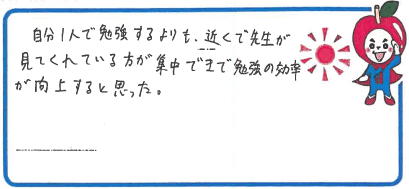 自分1人で勉強するよりも、近くで先生が
見てくれている方が集中できて勉強の効率
が向上すると思った。